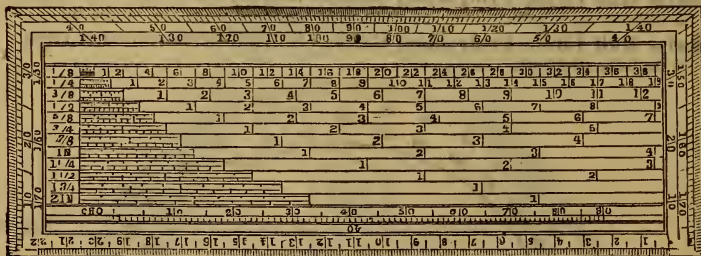 4|0 5|0 6|0 7|0 8|0 9|0 1|00 1|10 1|20 1|30 1|40
1|40 1|30 1|20 1|10 1|00 9|0 8|0 7|0 6|0 5|0 4|0
1/8 1 2| 4| 6| 8| 1|0 1|2 1|4 1|6 1|8 2|0 2|2 2|4 2|6 2|8 3|0 3|2 3|4 3|6 3|8
1/4 1 2 3 4 5 6 7 8 9 1|0 1|1 1|2 1|3 1|4 1|5 1|6 1|7 1|8 1|9
3/8 1 2 3 4 5 6 7 8 9 1|0 1|1 1|2
1/2 1 2 3 4 5 6 7 8 9
5/8 1 2 3 4 5 6 7
3/4 1 2 3 4 5
7/8 1 2 3 4
1N 1 2 3 4
1 1/4 1 2 3
1 1/2 1 2
1 3/4 1
2|N 1
CHO 1|0 2|0 3|0 4|0 5|0 6|0 7|0 8|0 9|0
1 2 3 4 5 6 7 8 9 10 11 12 13 14 15 16 17 18 19 20 21 22
3|0 2|0 1|0
1|50 1|60 1|70